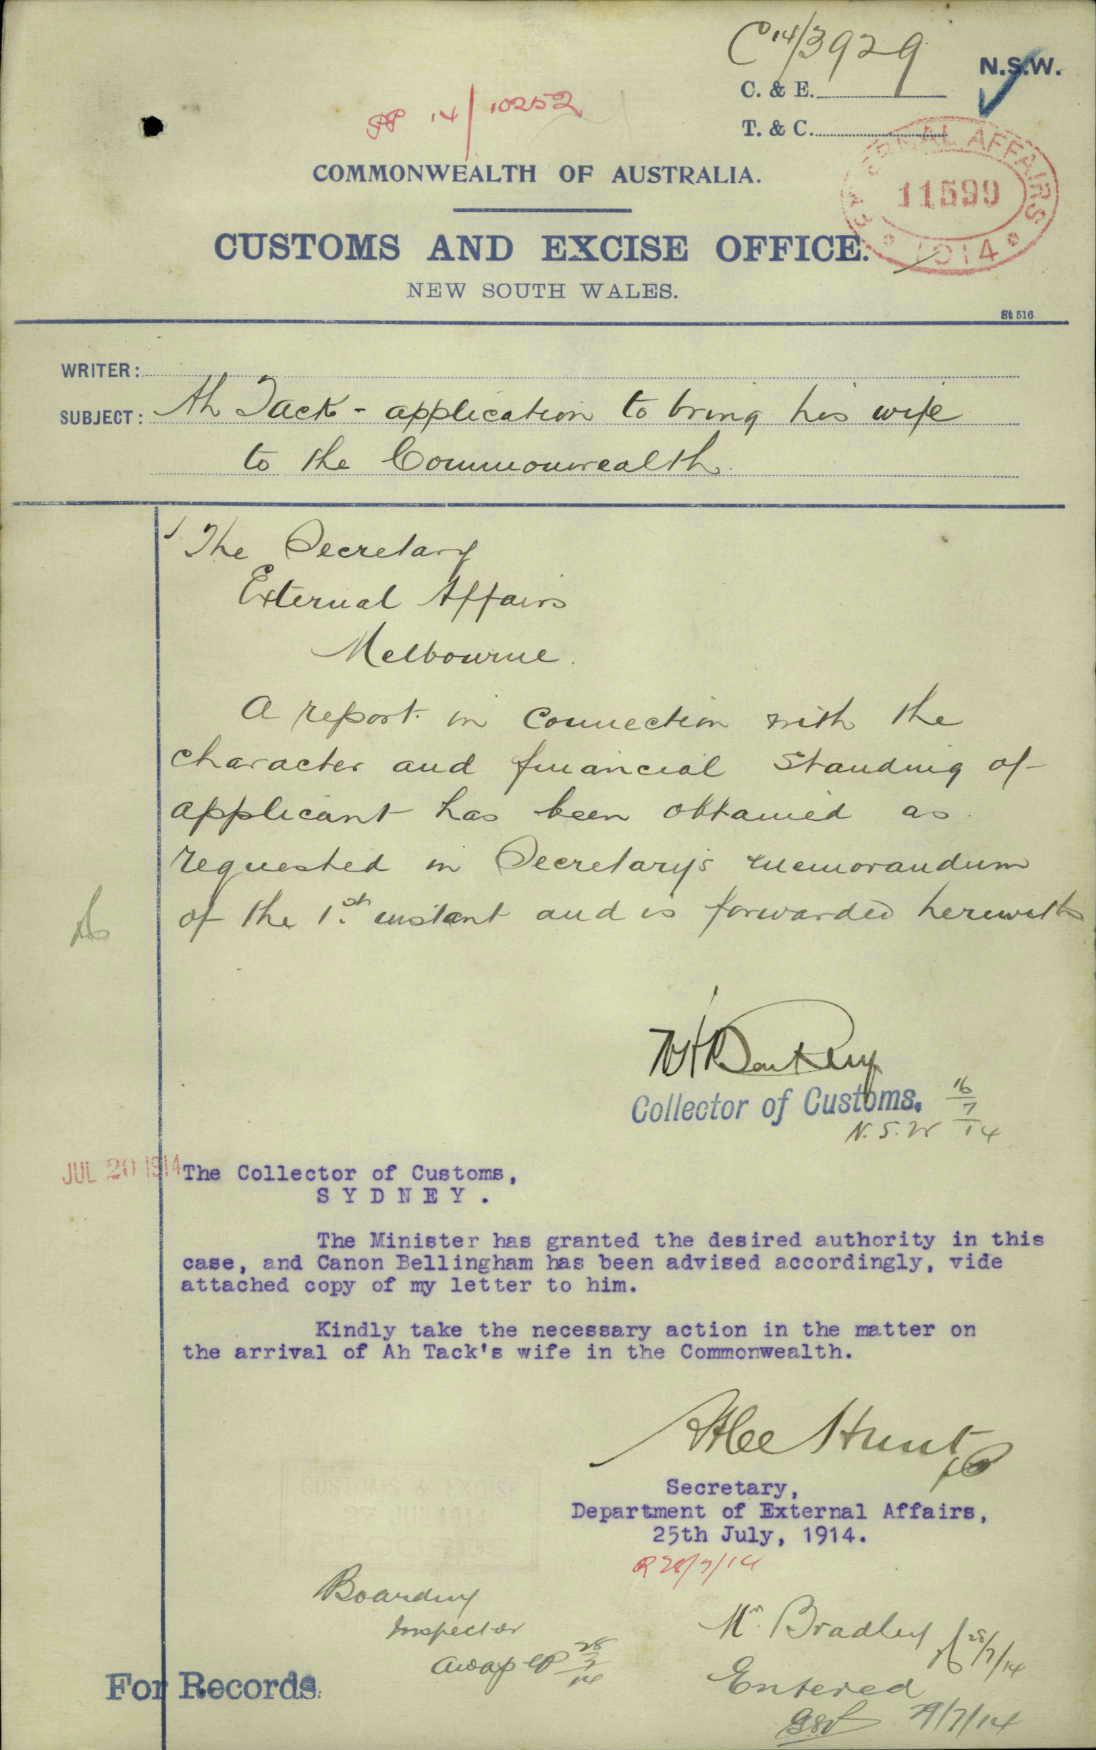 C 14/3929
N.S.W.
C. & E.
14/10252
T. & C.
EXTERNAL AFFAIRS
11599
1914
COMMONWEALTH OF AUSTRALIA.
CUSTOMS AND EXCISE OFFICE.
NEW SOUTH WALES.
St 516
WRITER:
SUBJECT: Ah Tack - application to bring his wife
to the Commonwealth.
The Secretary
External Affairs
Melbourne.
A report in connection with the
character and financial standing of
applicant has been obtained as
requested in Secretary's memorandum
of the 1st instant and is forwarded herewith
Collector of Customs.
N.S.W 16/7/14
JUL 20 1914
The Collector of Customs,
SYDNEY.
The Minister has granted the desired authority in this
case, and Canon Bellingham has been advised accordingly, vide
attached copy of my letter to him.
Kindly take the necessary action in the matter on
the arrival of Ah Tack's wife in the Commonwealth.
Atlee Hunt
Secretary,
Department of External Affairs,
25th July, 1914.
R 28/7/14
CUSTOMS & EXCISE
Boarding
Inspector
28/7/14
Mr. Bradley
28/7/14
Entered
29/7/14
For Records.